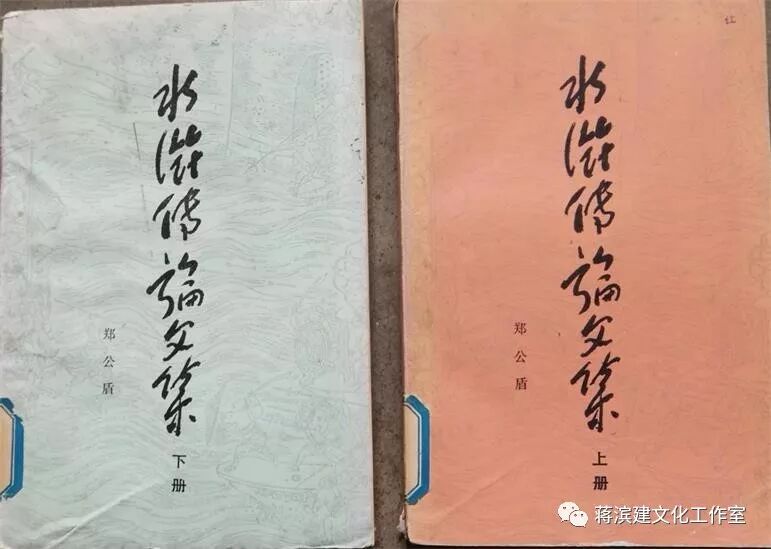 水浒传論文集
郑公盾
下册
水浒传論文集
郑公盾
上册
蒋滨建文化工作室